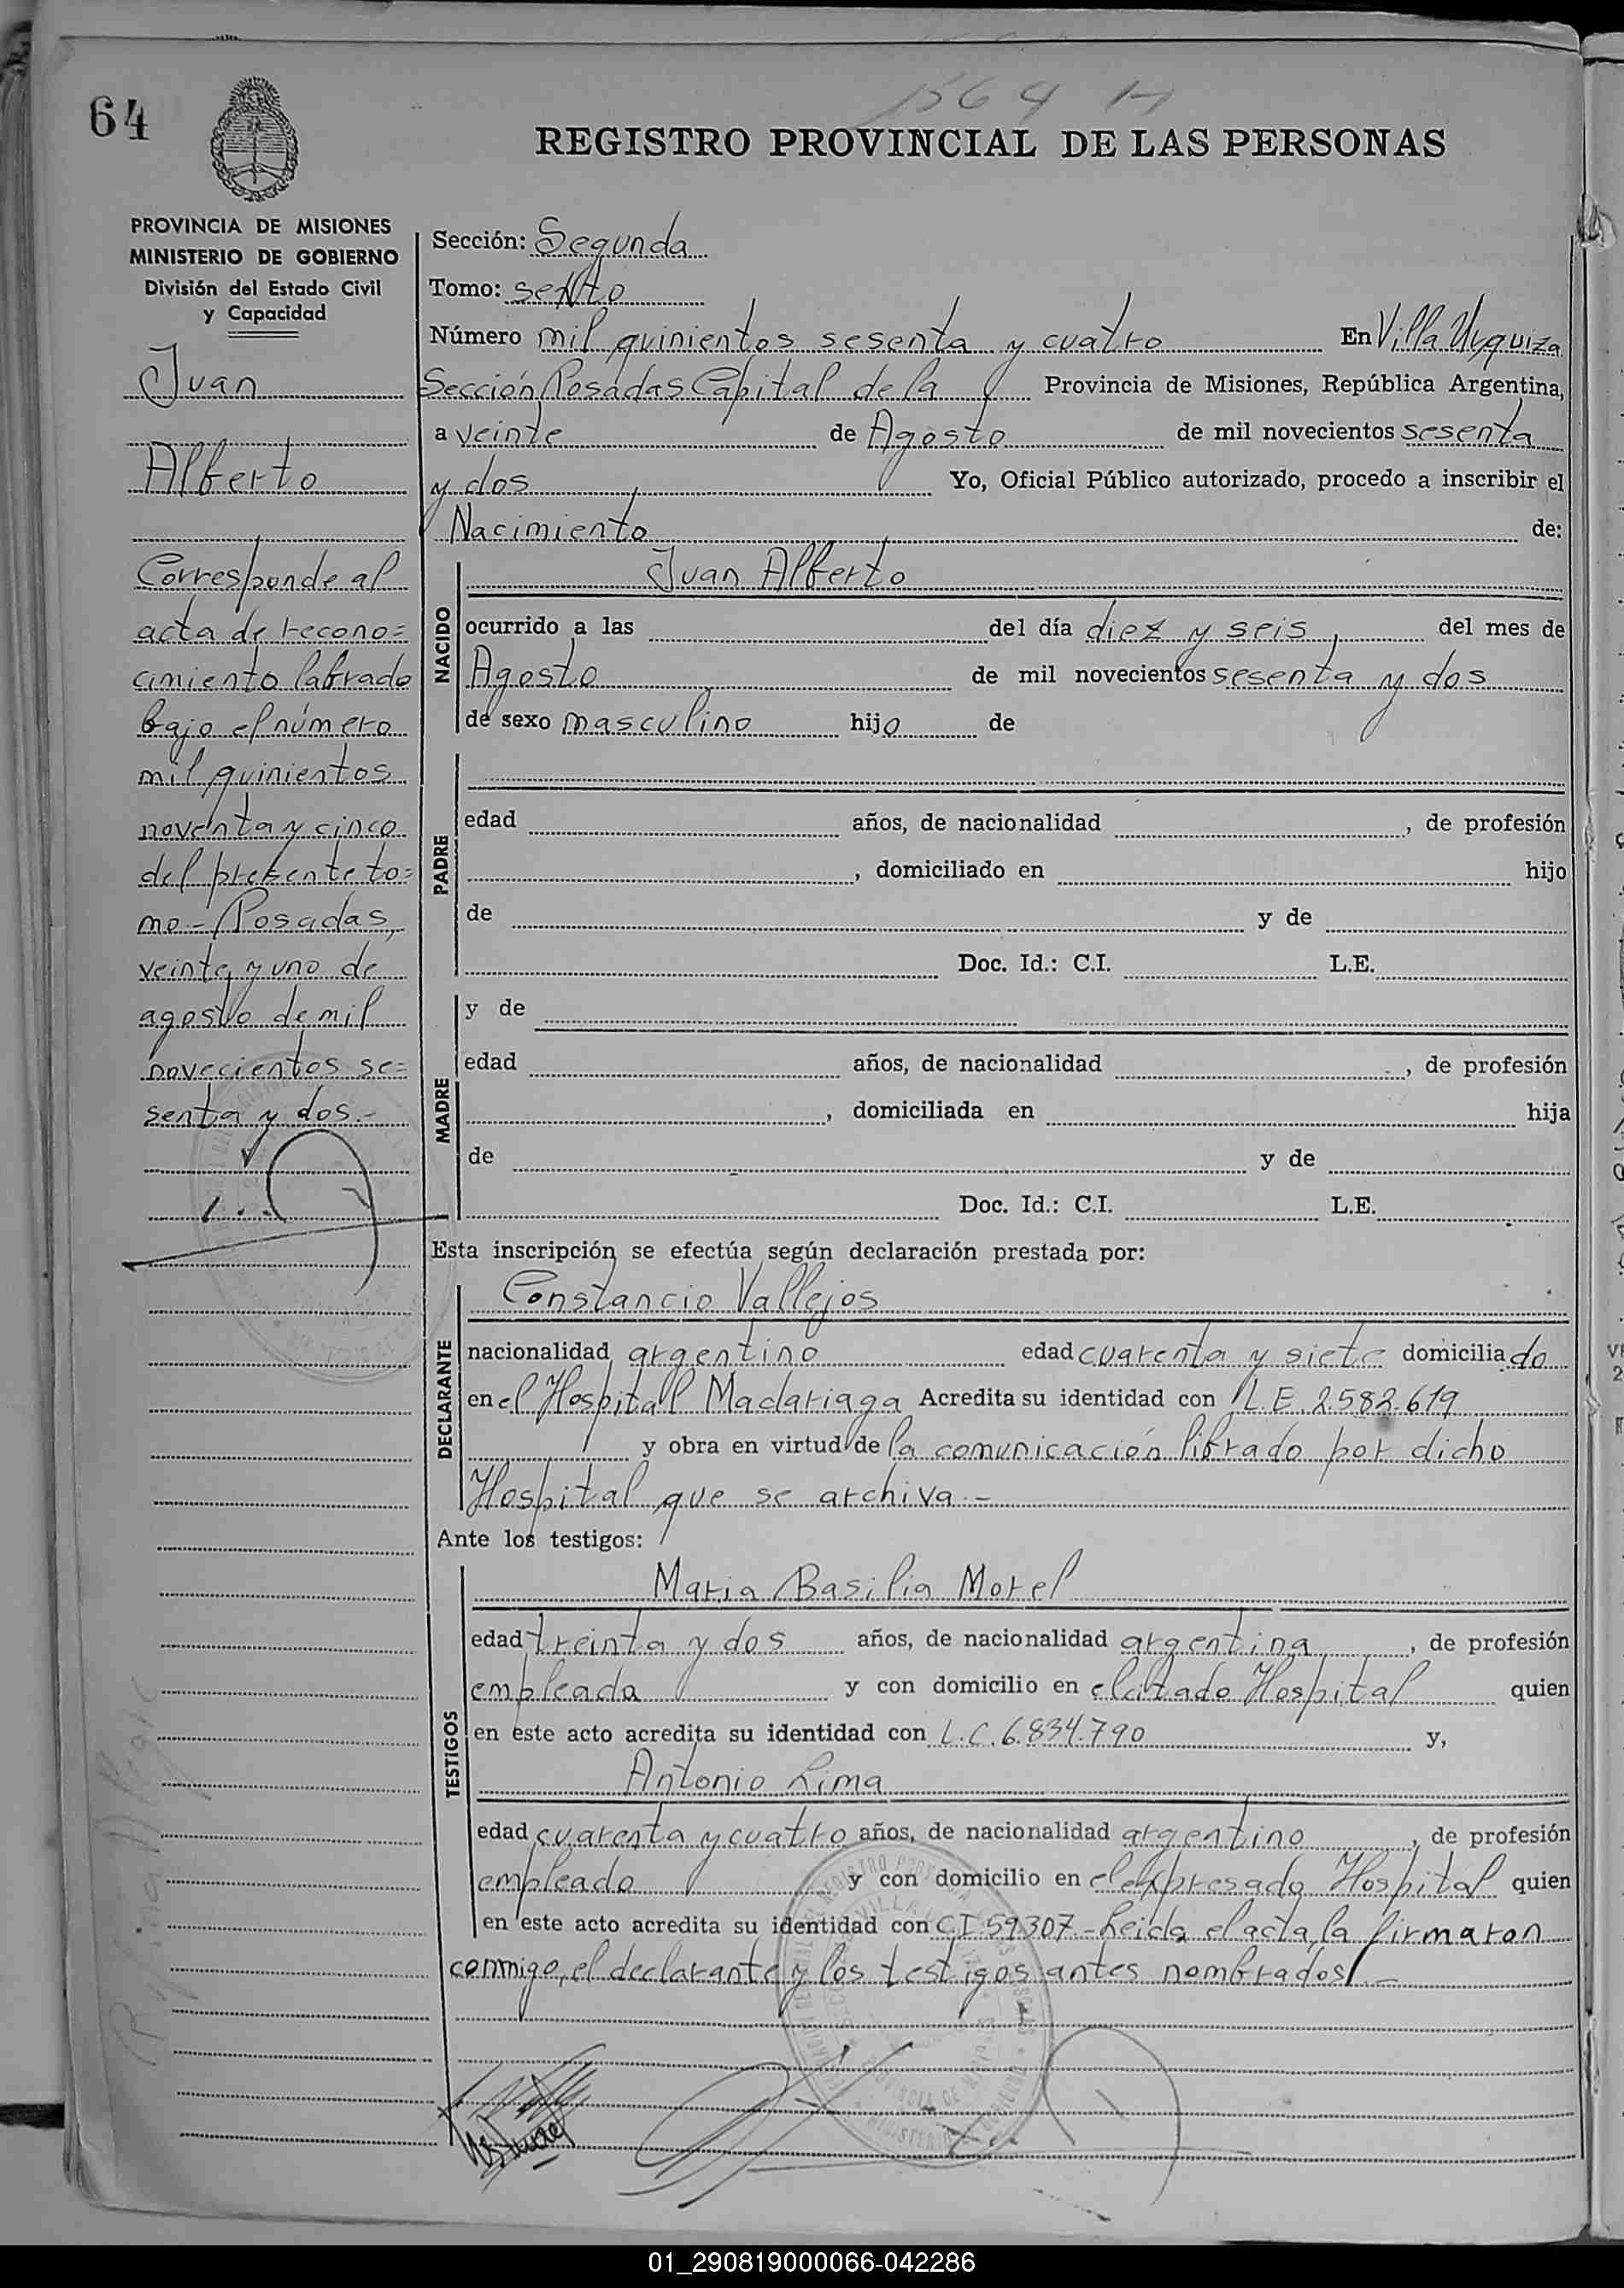 64
1564
REGISTRO PROVINCIAL DE LAS PERSONAS
PROVINCIA DE MISIONES
MINISTERIO DE GOBIERNO
División del Estado Civil
y Capacidad
Juan
Alberto
Corresponde al
acta de recono=
cimiento labrado
bajo el número
mil quinientos
noventa y cinco
del presente to=
mo.- Posadas,
veinte y uno de
agosto de mil
novecientos se=
senta y dos.-
Sección: Segunda
Tomo: sexto
Número mil quinientos sesenta y cuatro En Villa Urquiza
Sección Posadas Capital de la Provincia de Misiones, República Argentina,
a veinte de Agosto de mil novecientos sesenta
y dos Yo, Oficial Público autorizado, procedo a inscribir el
Nacimiento de:
NACIDO
Juan Alberto
ocurrido a las del día diez y seis, del mes de
Agosto de mil novecientos sesenta y dos
de sexo masculino hijo de
PADRE
edad años, de nacionalidad , de profesión
, domiciliado en hijo
de y de
Doc. Id.: C.I. L.E.
MADRE
y de
edad años, de nacionalidad , de profesión
, domiciliada en hija
de y de
Doc. Id.: C.I. L.E.
Esta inscripción se efectúa según declaración prestada por:
DECLARANTE
Constancio Vallejos
nacionalidad argentino edad cuarenta y siete domiciliado
en el Hospital Madariaga Acredita su identidad con L.E. 2.582.619
y obra en virtud de la comunicación librado por dicho
Hospital que se archiva.-
Ante los testigos:
TESTIGOS
Maria Basilia Morel
edad treinta y dos años, de nacionalidad argentina, de profesión
empleada y con domicilio en el citado Hospital quien
en este acto acredita su identidad con L.C. 6.834.790 y,
Antonio Lima
edad cuarenta y cuatro años, de nacionalidad argentino, de profesión
empleado y con domicilio en el expresado Hospital quien
en este acto acredita su identidad con C.I 59307.- Leida el acta, la firmaron
conmigo, el declarante y los testigos antes nombrados.-
01_290819000066-042286